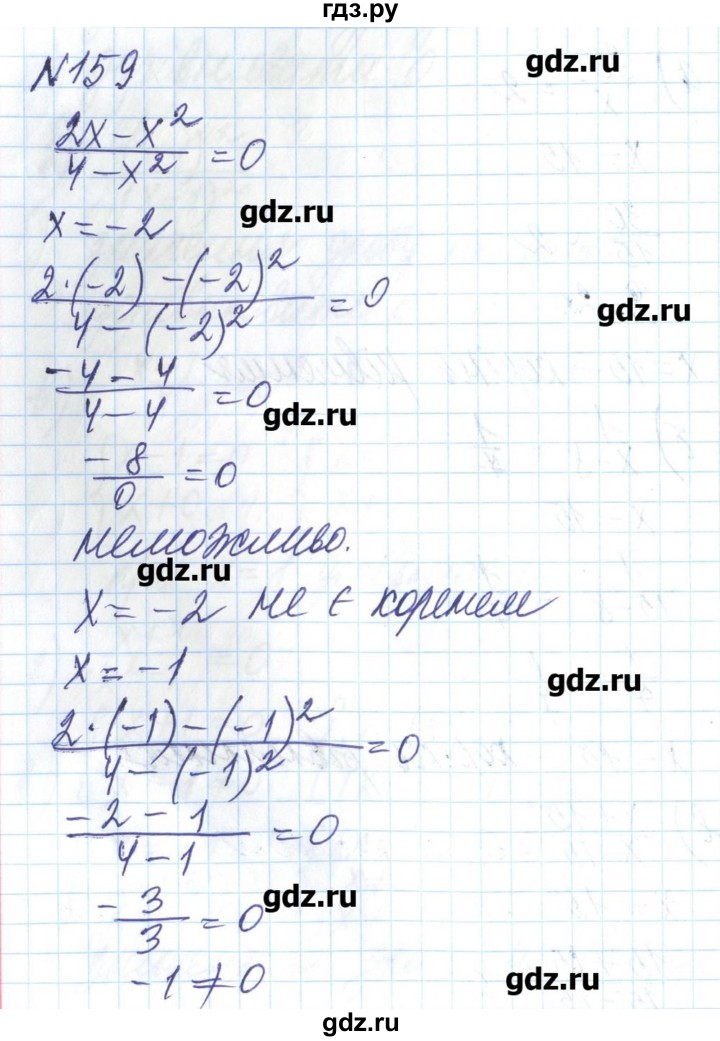 гдз.ру
№159
gdz.ru
(2x - x²)/(4 - x²) = 0
x = -2
gdz.ru
(2·(-2) - (-2)²)/(4 - (-2)²) = 0
gdz.ru
(-4 - 4)/(4 - 4) = 0
gdz.ru
-8/0 = 0
неможливо.
gdz.ru
x = -2 не є коренем
x = -1
gdz.ru
(2·(-1) - (-1)²)/(4 - (-1)²) = 0
(-2 - 1)/(4 - 1) = 0
gdz.ru
-3/3 = 0
-1 ≠ 0
gdz.ru
gdz.ru